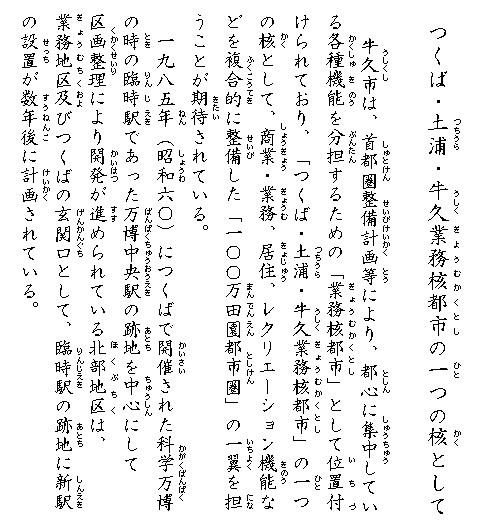 つくば・土浦・牛久業務核都市の一つの核として
牛久市は、首都圏整備計画等により、都心に集中してい
る各種機能を分担するための「業務核都市」として位置付
けられており、「つくば・土浦・牛久業務核都市」の一つ
の核として、商業・業務、居住、レクリエーション機能な
どを複合的に整備した「一〇〇万田園都市圏」の一翼を担
うことが期待されている。
一九八五年（昭和六〇）につくばで開催された科学万博
の時の臨時駅であった万博中央駅の跡地を中心にして
区画整理により開発が進められている北部地区は、
業務地区及びつくばの玄関口として、臨時駅の跡地に新駅
の設置が数年後に計画されている。